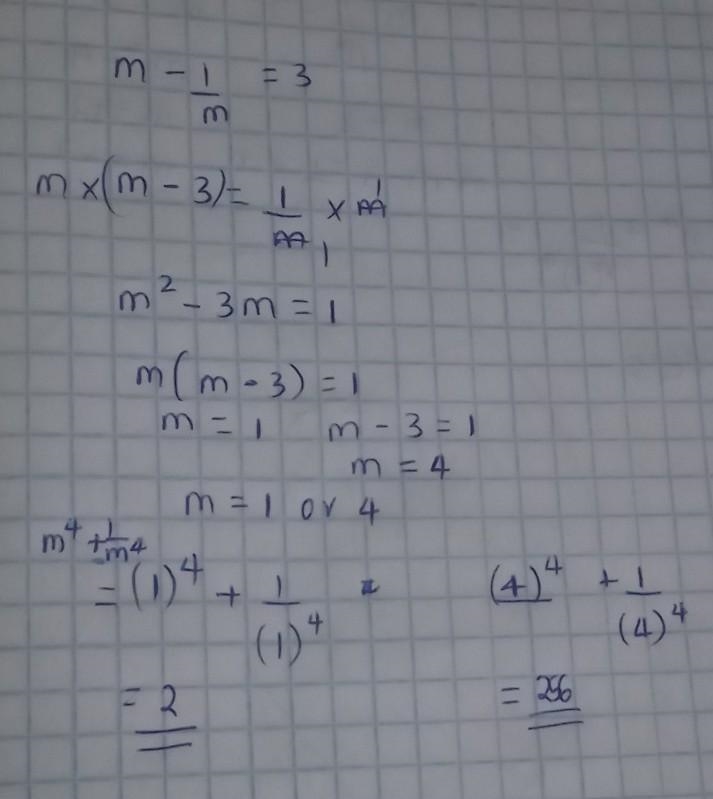 m - 1/m = 3
m × (m - 3) = 1/m 1 × m 1
m² - 3m = 1
m(m - 3) = 1
m = 1 m - 3 = 1
m = 4
m = 1 or 4
m⁴ + 1/m⁴
= (1)⁴ + 1/(1)⁴ (4)⁴ + 1/(4)⁴
= 2 = 256